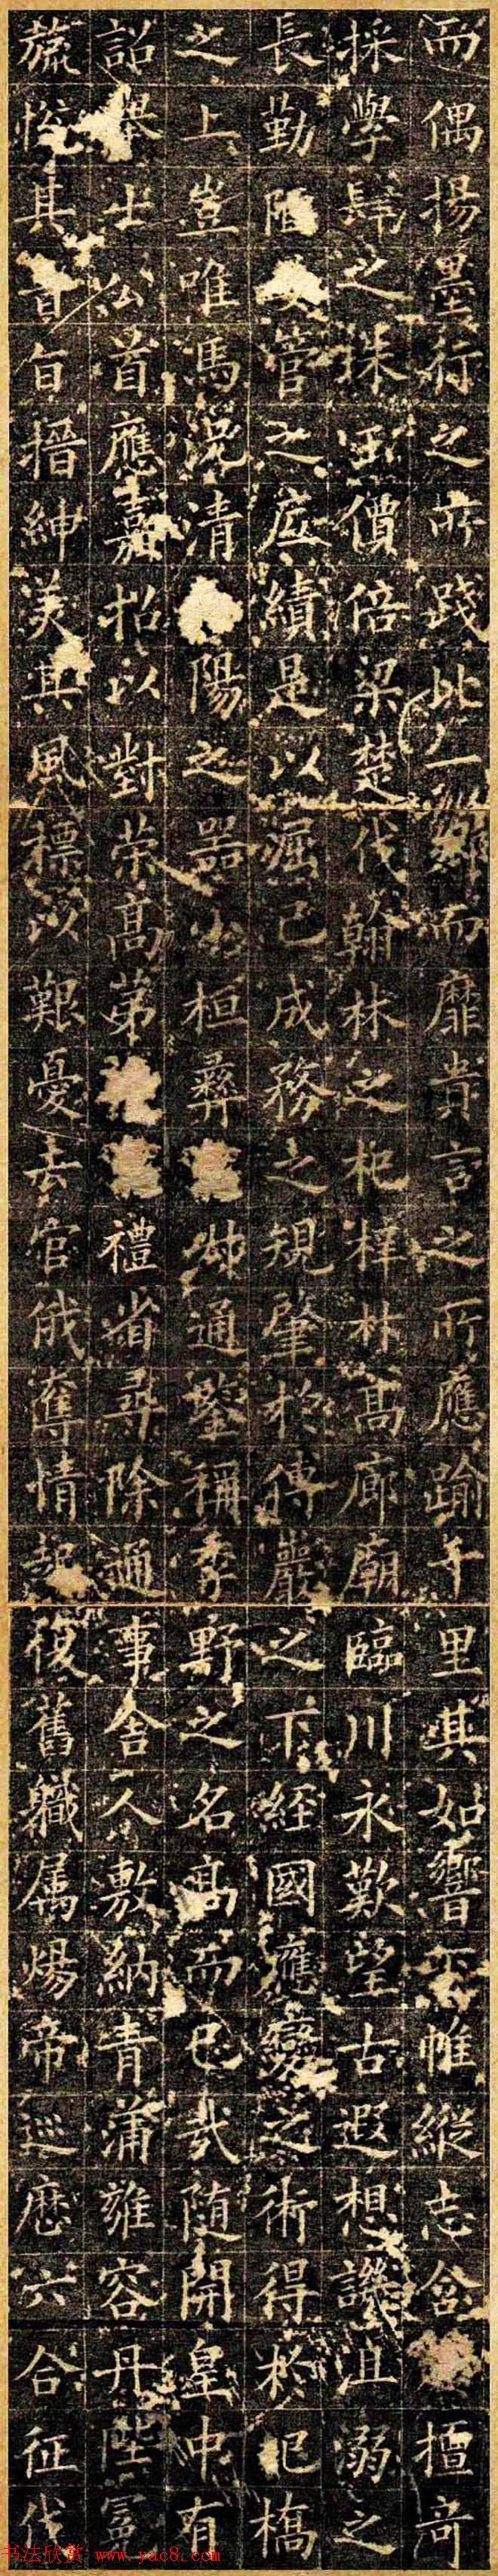 而偶揚墨行之所踐比一鄉而靡貴言之所應踰千里其如響帷縱志含擅奇
採學肆之珠玉價倍梁楚伐翰林之杞梓材高廊廟臨川永歎望古遐想譏沮溺之
長勤陋管之庶績是以濯己成務之規肇於傅巖之下經國應變之術得於圯橋
之上豈唯馮清陽之器尚桓彝通鑒稱季野之名高而已哉隨開皇中有
詔舉士公首應嘉招以對策高第禮省尋除通事舍人敷納青蒲雍容丹陛
悅其音旨搢紳美其風標以艱憂去官俄奪情起復舊職属煬帝巡歷六合征伐
书法欣赏 www.yac8.com